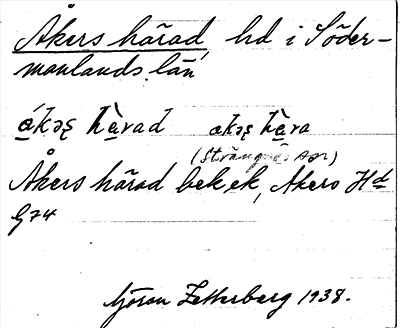 Åkers härad, hd i Söder-
manlands län
á̲kəʂ hà̲rad akəʂ hà̲ra
(Strängnäs Aor)
Åkers härad bek.ek, Akers Hd
G74
Göran Zetterberg 1938.